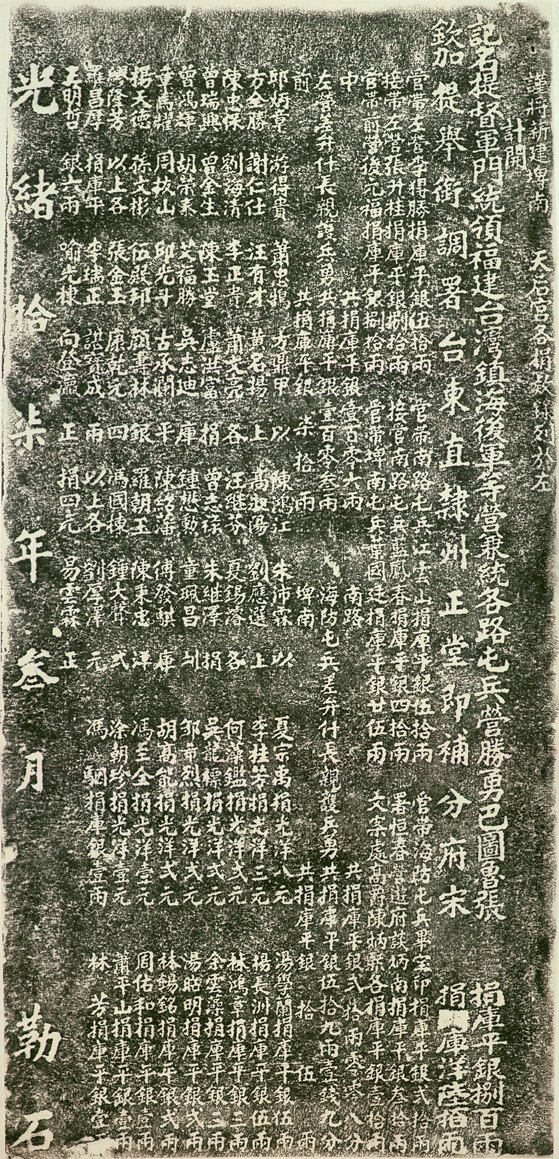 謹將新建埤南 天后宮各捐款緣列於左
計開
記名提督軍門統領福建台灣鎮海後軍等營兼統各路屯兵營勝勇巴圖魯張 捐庫平銀捌百兩
欽加提舉銜調署台東直隸州正堂即補分府宋 捐庫洋陸拾兩
管帶左營李得勝捐庫平銀伍拾兩 管帶南路屯兵江雲山捐庫平銀伍拾兩 管帶海防屯兵畢宝印捐庫平銀弍拾兩
接帶左營張升桂捐庫平銀捌拾兩 接管南路屯兵藍鳳春捐庫平銀四拾兩 署恒春營遊府談炳南捐庫平銀叁拾兩
管帶前營後元福捐庫平銀捌拾兩 管帶埤南屯兵葉國廷捐庫平銀廿伍兩 文案處高爵陳炳熙各捐庫平銀壹拾兩
中 共捐庫平銀壹百零六兩 南路 共捐庫平銀弍拾兩零零八分
左營差弁什長親護兵勇共捐庫平銀壹百零叁兩 海防屯兵差弁什長親護兵勇共捐庫平銀伍拾九兩壹錢九分
前 共捐庫平銀柒拾兩 埤南 共捐庫平銀拾伍兩
邱炳章 游得貴 蕭忠鵠 方鼎甲 以 陳鴻江 朱沛霖 以 夏宗禹捐光洋八元 湯學蘭捐庫平銀伍兩
方全勝 謝仁仕 汪有才 黄名揚 上 高郁陽 劉應選 上 李桂芳捐光洋三元 楊長洲捐庫平銀伍兩
陳忠保 劉海清 李正貴 蕭文亮 各 汪継芬 夏錫溶 各 何藻鑑捐光洋弍元 林鴻章捐庫平銀三兩
曾瑞興 曾金生 陳玉堂 盧洪富 捐 曾志祿 朱維澤 捐 吳龍標捐光洋弍元 余雲藻捐庫平銀三兩
曾鴻輝 胡榮泰 艾福勝 吳志迪 庫 鍾懋勳 童珮昌 邹希烈捐光洋弍元 湯昭明捐庫平銀弍兩
章萬耀 周拔山 邱光斗 古承斕 平 陳紹藩 傅發騏 庫 胡高能捐光洋弍元 林錫銘捐庫平銀弍兩
楊大德 孫文彬 伍殿邦 顏壽林 銀 羅朝玉 陳東忠 洋 馮至全捐光洋壹元 周佑和捐庫平銀壹兩
興隆芳 以上各 張金玉 康乾元 四 馮國棟 鍾大聲 弍 涂朝珍捐光洋壹元 蕭平山捐庫平銀壹兩
羅昌厚 捐庫平 李瑞正 諶寶成 兩 以上各 劉厚澤 元 馮駟捐庫銀壹兩 林芳捐庫平銀壹兩
王明哲 銀六兩 喻光棟 向登瀛 正 捐四元 易雲霖 正
光緒拾柒年叁月 勒石